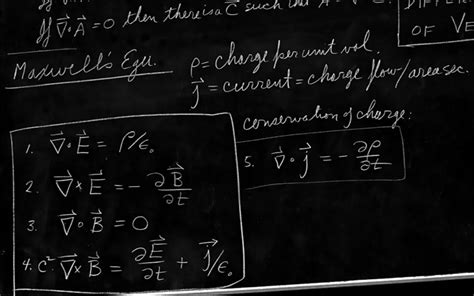 If ∇⃗·A⃗ = 0 then there is a C⃗ such that A⃗ =
OF VE
Maxwell's Equ.
ρ = charge per unit vol.
j⃗ = current = charge flow/area sec.
conservation of charge:
1. ∇⃗·E⃗ = ρ/ε₀
5. ∇⃗·j⃗ = -∂ρ/∂t
2. ∇⃗×E⃗ = -∂B⃗/∂t
3. ∇⃗·B⃗ = 0
4. c² ∇⃗×B⃗ = ∂E⃗/∂t + j⃗/ε₀